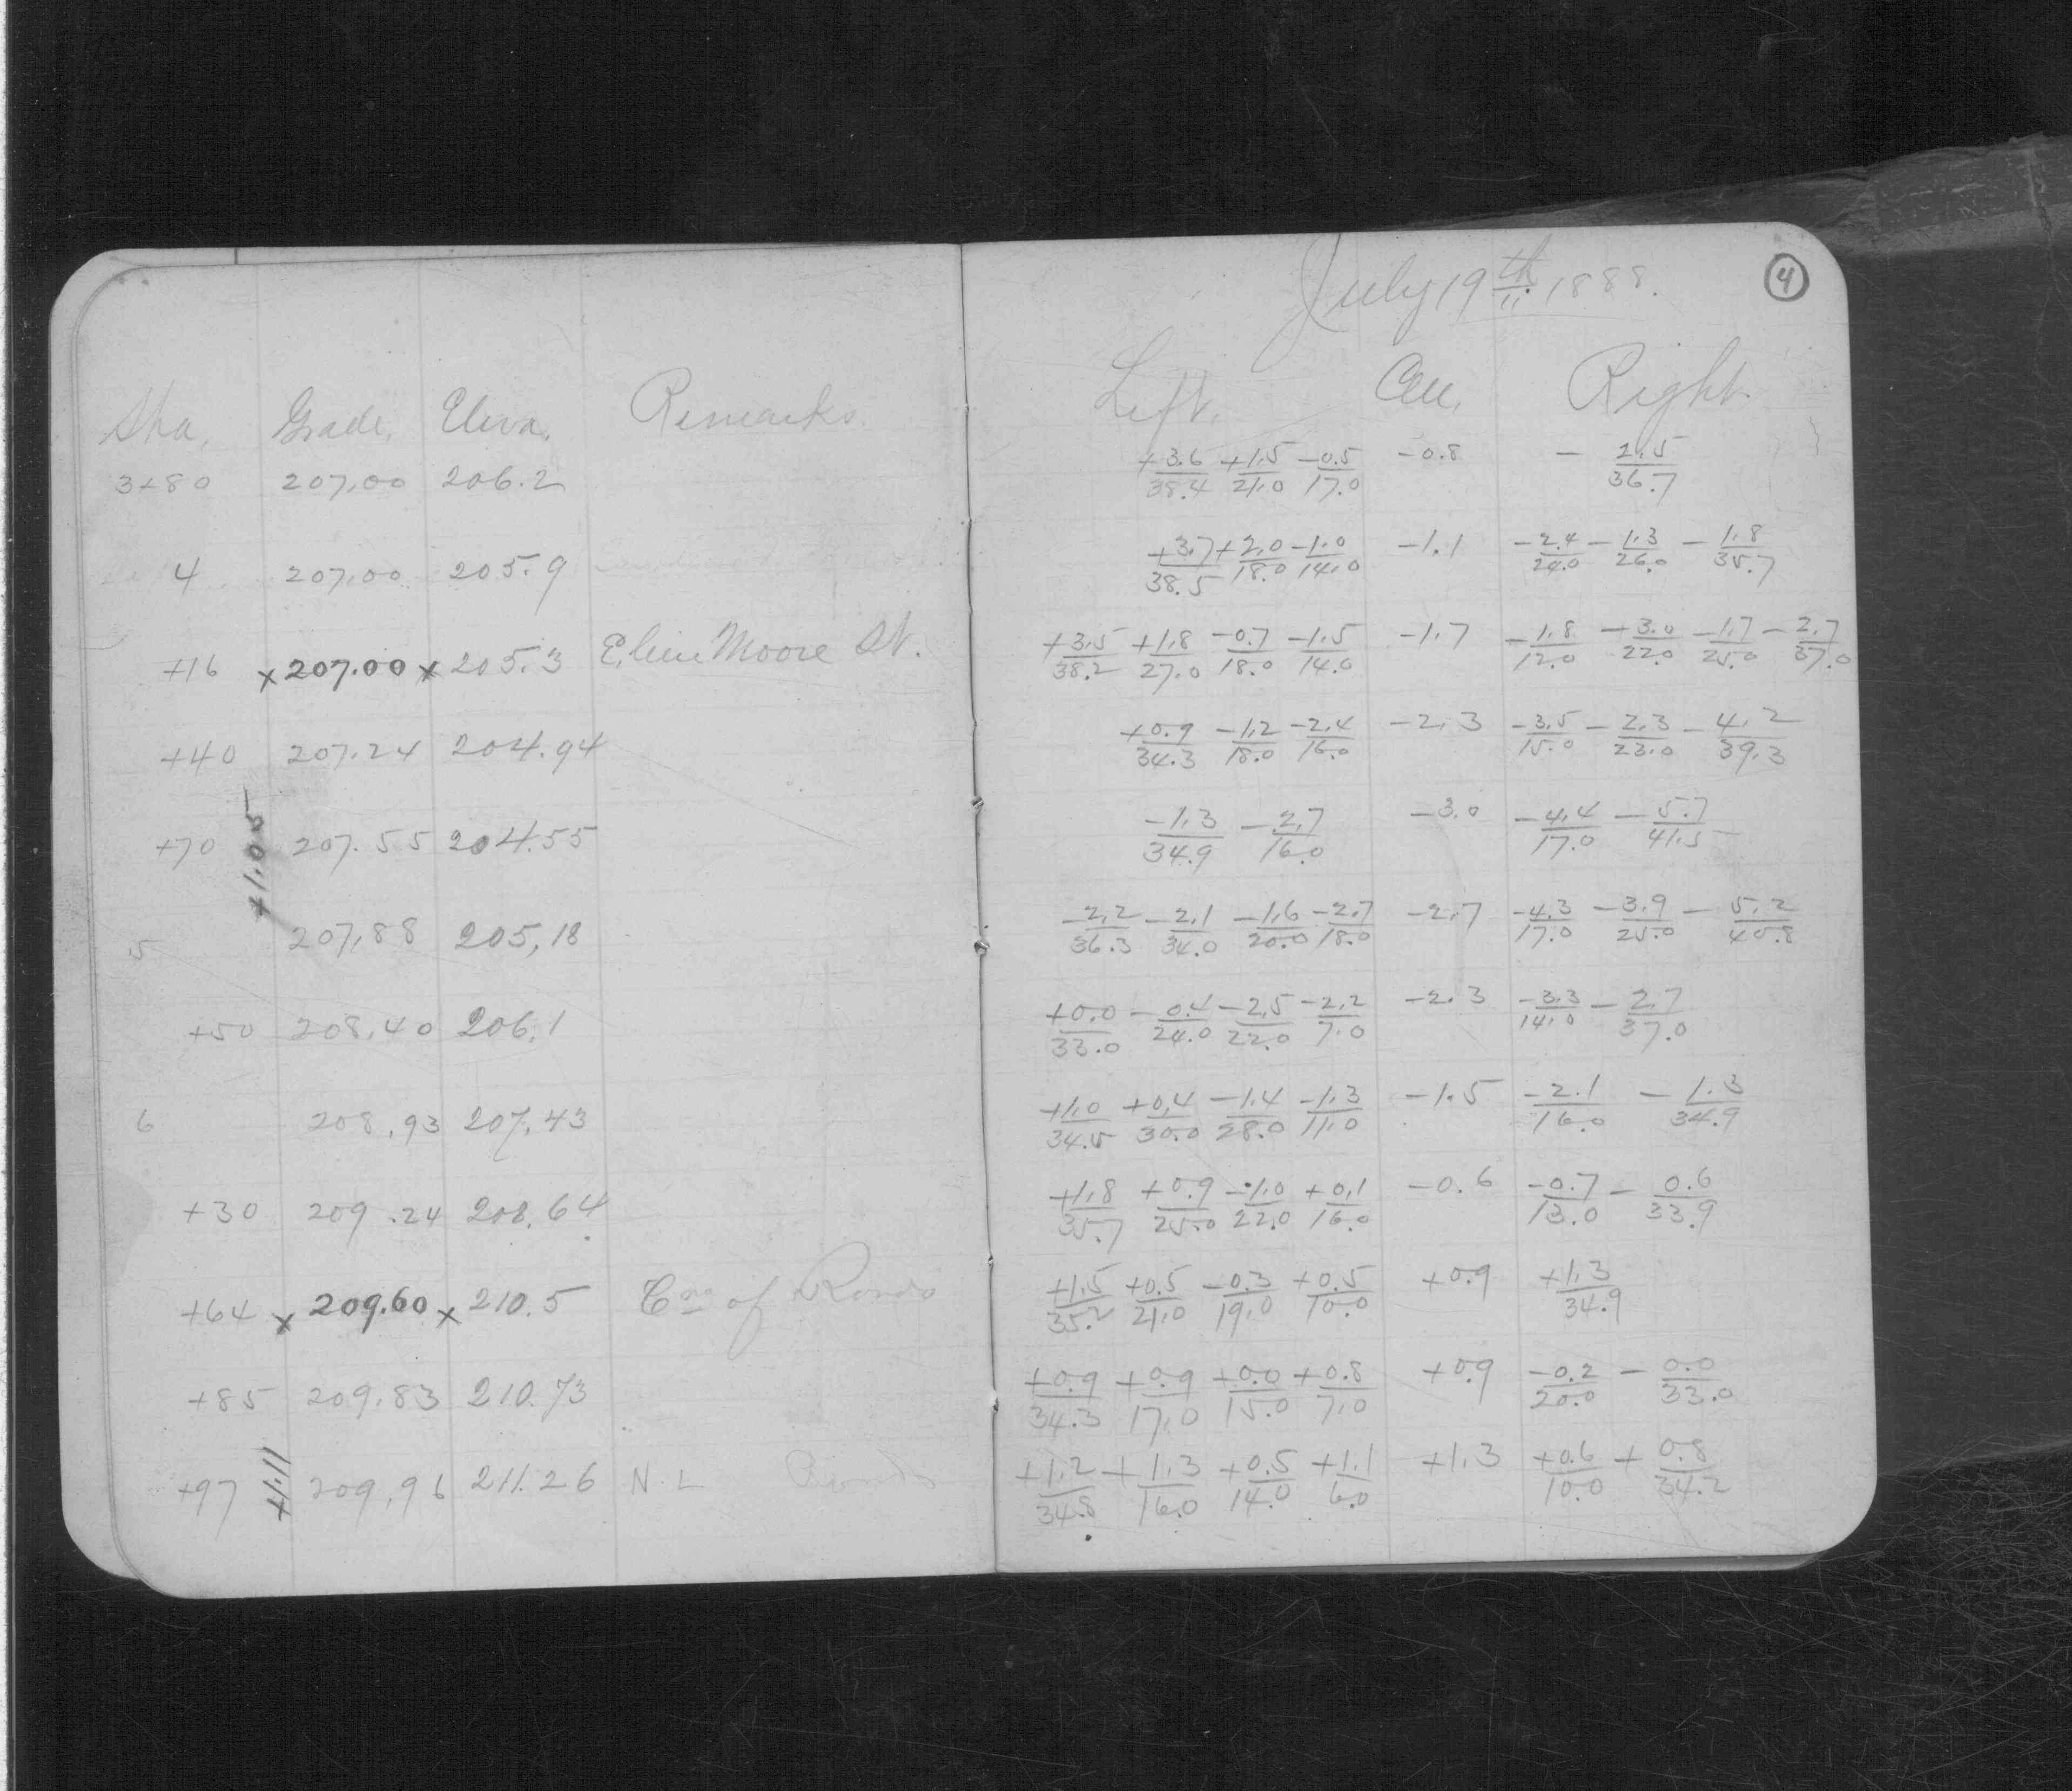 July 19th 1888.
4
Sta. Grade. Eleva. Remarks.
Left. Cen. Right.
3+80 207.00 206.2
+3.6/38.4 +1.5/21.0 -0.5/17.0 -0.8 - 2.5/36.7
4 207.00 205.9
+3.7/38.5 +2.0/18.0 -1.0/14.0 -1.1 -2.4/24.0 -1.3/26.0 -1.8/35.7
+16 x 207.00 x 205.3 Moore St.
+3.5/38.2 +1.8/27.0 -0.7/18.0 -1.5/14.0 -1.7 -1.8/12.0 -3.0/22.0 -1.7/25.0 -2.7/37.0
+40 207.24 204.94
+0.9/34.3 -1.2/18.0 -2.4/16.0 -2.3 -3.5/15.0 -2.3/23.0 -4.2/39.3
+1.05
+70 207.55 204.55
-1.3/34.9 -2.7/16.0 -3.0 -4.4/17.0 -5.7/41.5
5 207.88 205.18
-2.2/36.3 -2.1/34.0 -1.6/20.0 -2.7/18.0 -2.7 -4.3/17.0 -3.9/25.0 -5.2/40.8
+50 208.40 206.1
+0.0/33.0 -0.4/24.0 -2.5/22.0 -2.2/7.0 -2.3 -3.3/14.0 -2.7/37.0
6 208.93 207.43
+1.0/34.5 +0.4/30.0 -1.4/28.0 -1.3/11.0 -1.5 -2.1/16.0 -1.3/34.9
+30 209.24 208.64
+1.8/35.7 +0.9/25.0 -1.0/22.0 +0.1/16.0 -0.6 -0.7/13.0 -0.6/33.9
+64 x 209.60 x 210.5 of Rondo
+1.5/35.2 +0.5/21.0 -0.3/19.0 +0.5/10.0 +0.9 +1.3/34.9
+85 209.83 210.73
+0.9/34.3 +0.9/17.0 +0.0/15.0 +0.8/7.0 +0.9 -0.2/20.0 - 0.0/33.0
+1.11
+97 209.96 211.26 N. L Rondo
+1.2/34.8 +1.3/16.0 +0.5/14.0 +1.1/6.0 +1.3 +0.6/10.0 +0.8/34.2